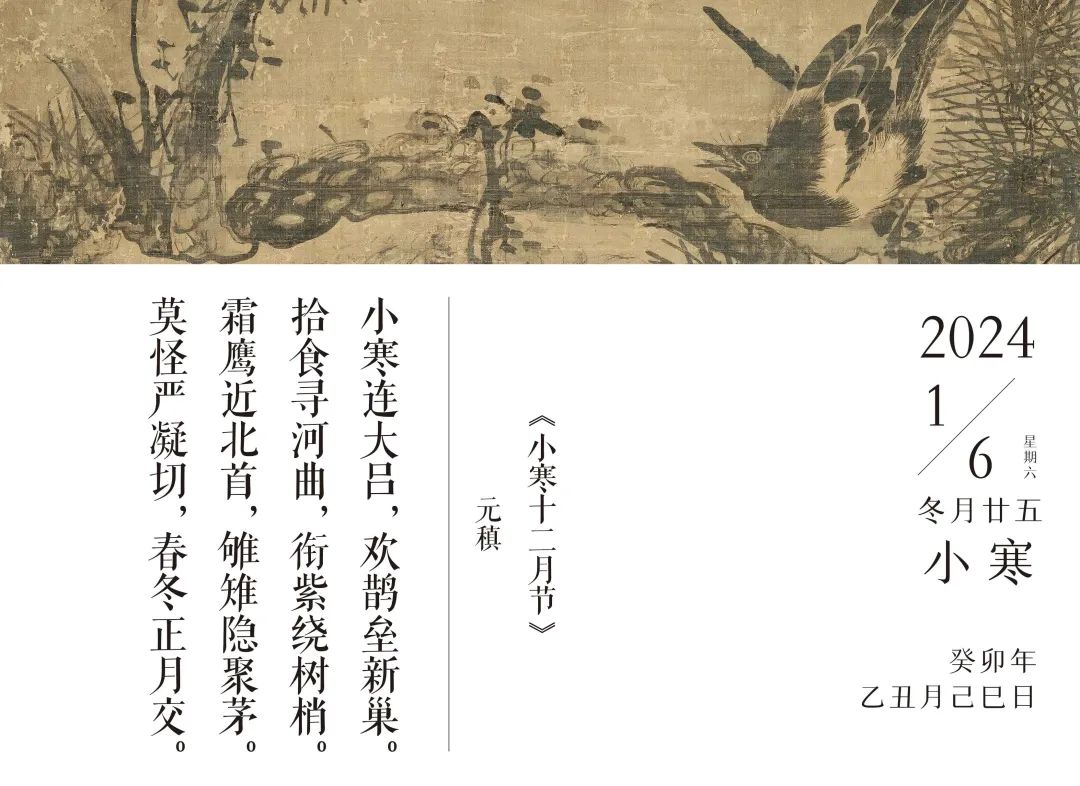 2024
1/6
星期六
冬月廿五
小寒
癸卯年
乙丑月己巳日
《小寒十二月节》
元稹
小寒连大吕，欢鹊垒新巢。
拾食寻河曲，衔紫绕树梢。
霜鹰近北首，雊雉隐聚茅。
莫怪严凝切，春冬正月交。